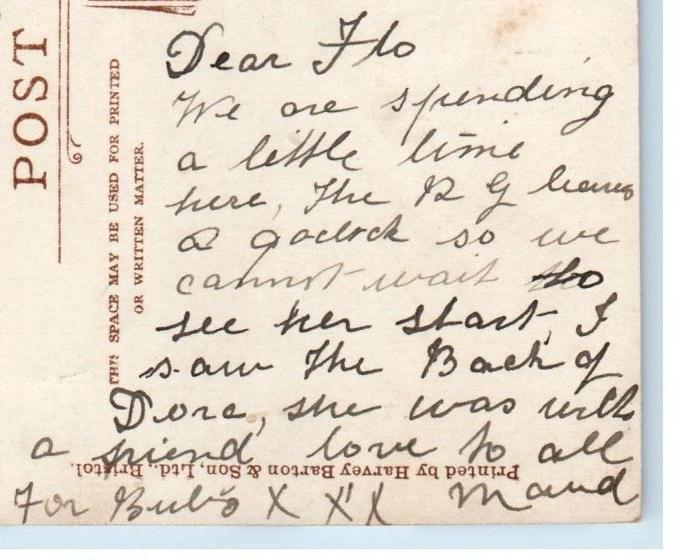 POST
THIS SPACE MAY BE USED FOR PRINTED
OR WRITTEN MATTER.
Dear Flo
We are spending
a little time
here, The R G leaves
2 oclock so we
cannot wait to
see her start, I
saw the Back of
Dora, she was with
a friend love to all
For Bubs X X X Maud
Printed by Harvey Barton & Son, Ltd., Bristol.